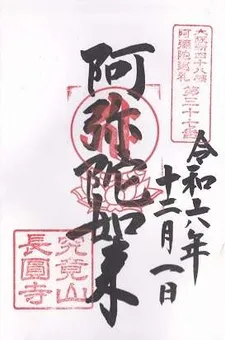 大阪新四十八願
阿彌陀巡礼 第三十七番
令和六年
十二月一日
阿弥陀如来
究竟山
長圓寺